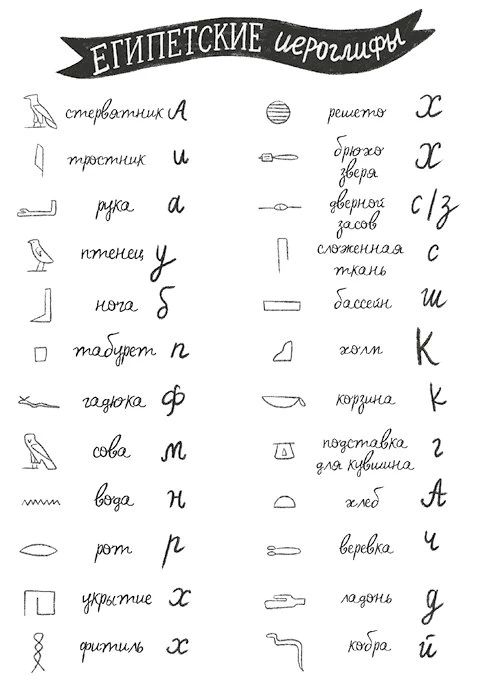 ЕГИПЕТСКИЕ иероглифы
стервятник А
тростник и
рука а
птенец у
нога б
табурет п
гадюка ф
сова м
вода н
рот р
укрытие х
фитиль х
решето х
брюхо
зверя х
дверной
засов с/з
сложенная
ткань с
бассейн ш
холм К
корзина к
подставка
для кувшина г
хлеб А
веревка ч
ладонь д
кобра й